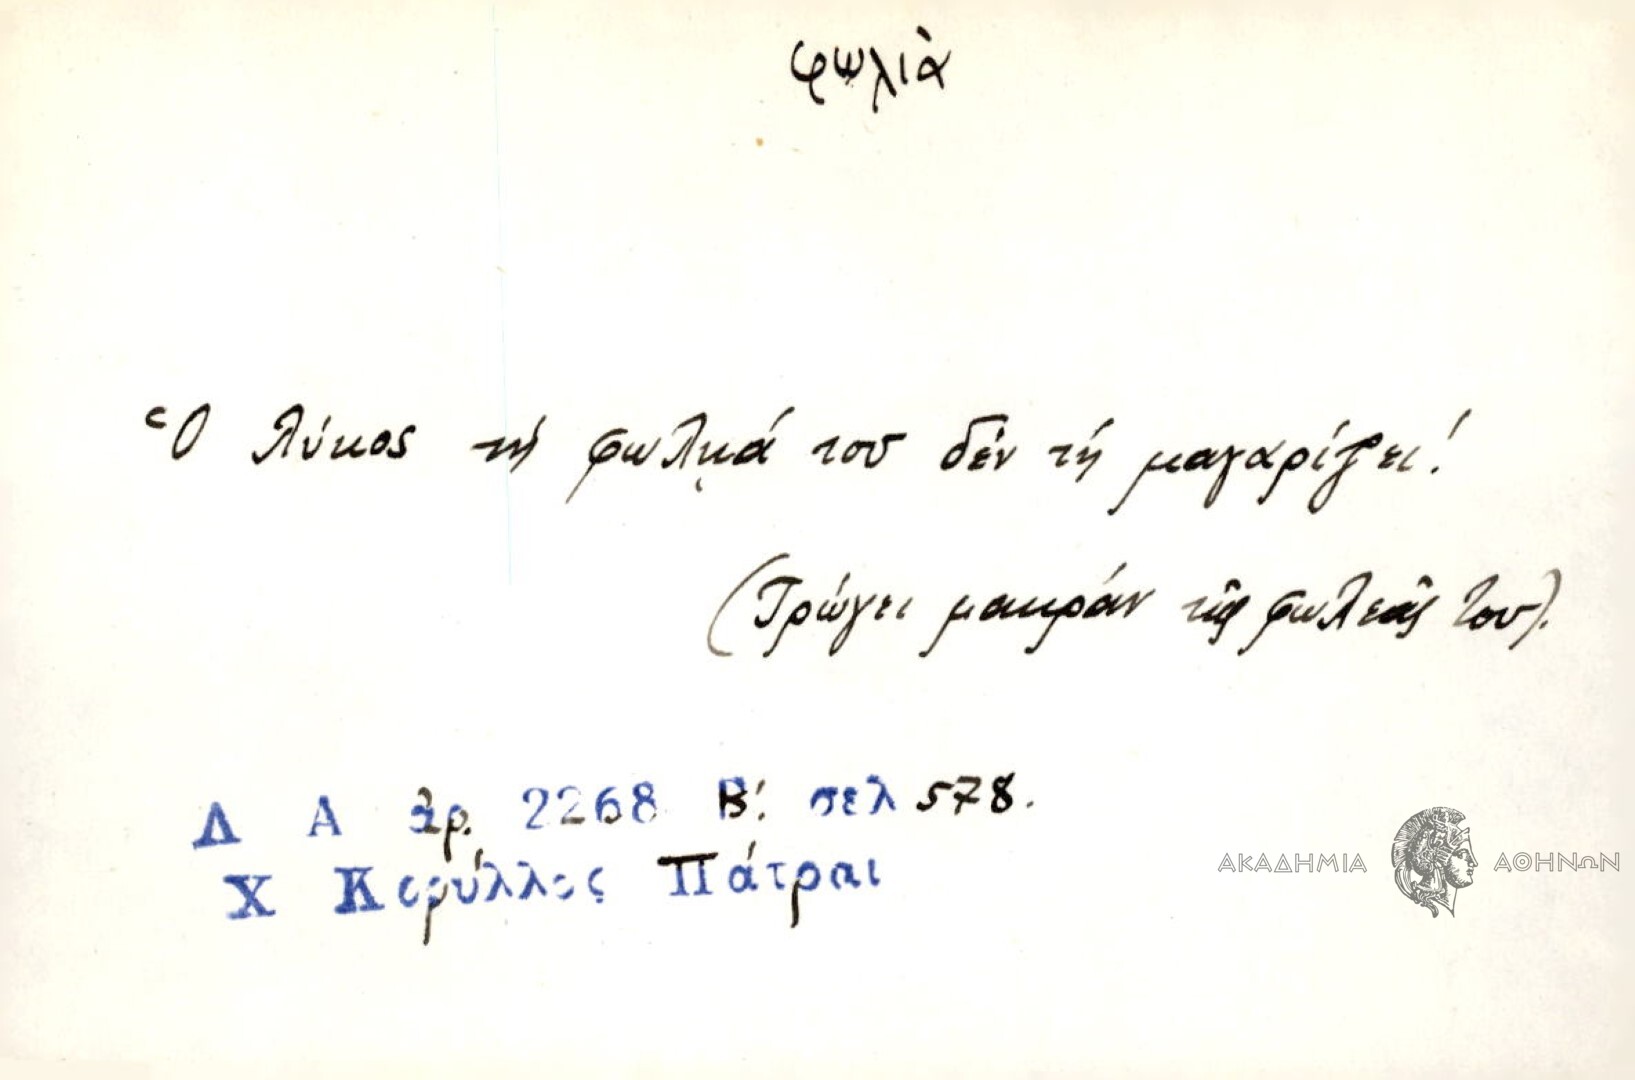 φωλιὰ
Ὁ λύκος τή φωλιά του δέν τή μαγαρίζει!
(Τρώγει μακράν τῆς φωλεᾶς του).
Δ Α ἀρ. 2268 Β΄. σελ 578.
Χ Κορύλλος Πάτραι
ΑΚΑΔΗΜΙΑ ΑΘΗΝΩΝ